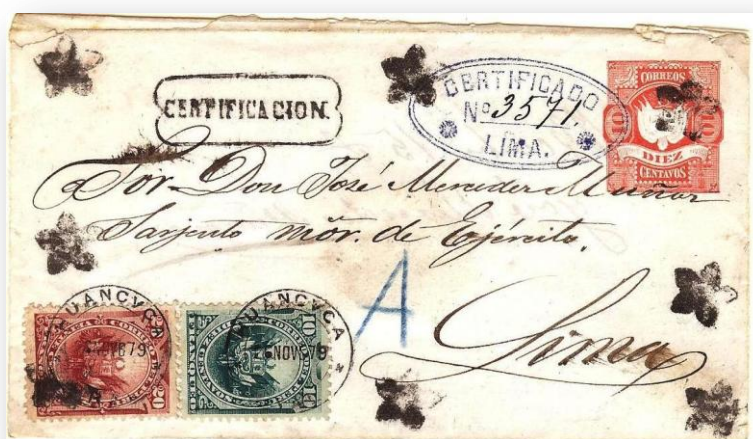 CERTIFICACION.
CERTIFICADO
Nº 3571.
LIMA.
CORREOS
10 10
DIEZ
CENTAVOS
Sor. Don José Mercedes Muñoz
Sarjento mor. de Ejército.
Lima
A
HUANCVCA
NOV 79
20
HUANCVCA
NOV 79
10 10